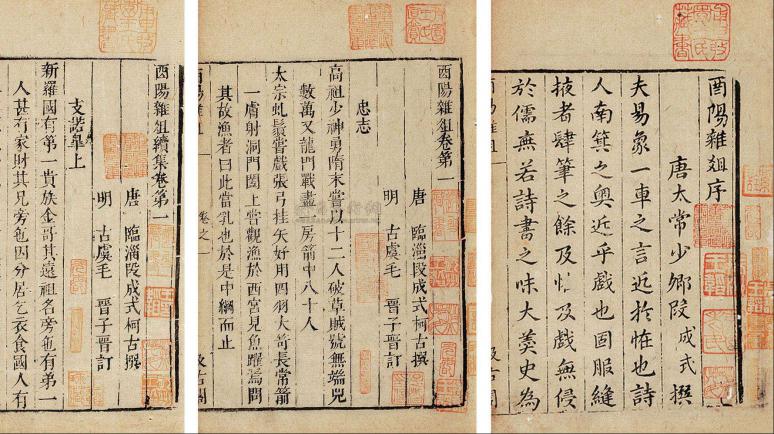 酉陽雜俎序
唐太常少卿段成式撰
夫易象一車之言近於怪也詩
人南箕之奧近乎戲也固服縫
掖者肆筆之餘及怪及戲無侵
於儒無若詩書之味大羹史為
酉陽雜俎卷第一
唐 臨淄段成式柯古撰
明 古虞毛 晉子晉訂
忠志
高祖少神勇隋末嘗以十二人破草賊號無端兒
數萬又龍門戰盡一房箭中八十人
太宗虬鬚嘗戲張弓挂矢好用四羽大笴長常箭
一膚射洞門闔上嘗觀漁於西宮見魚躍焉問
其故漁者曰此當乳也於是中網而止
酉陽雜俎 卷之一 汲古閣
酉陽雜俎續集卷第一
唐 臨淄段成式柯古撰
明 古虞毛 晉子晉訂
支諾皐上
新羅國有第一貴族金哥其遠祖名旁㐌有弟一
人甚有家財其兄旁㐌因分居乞衣食國人有